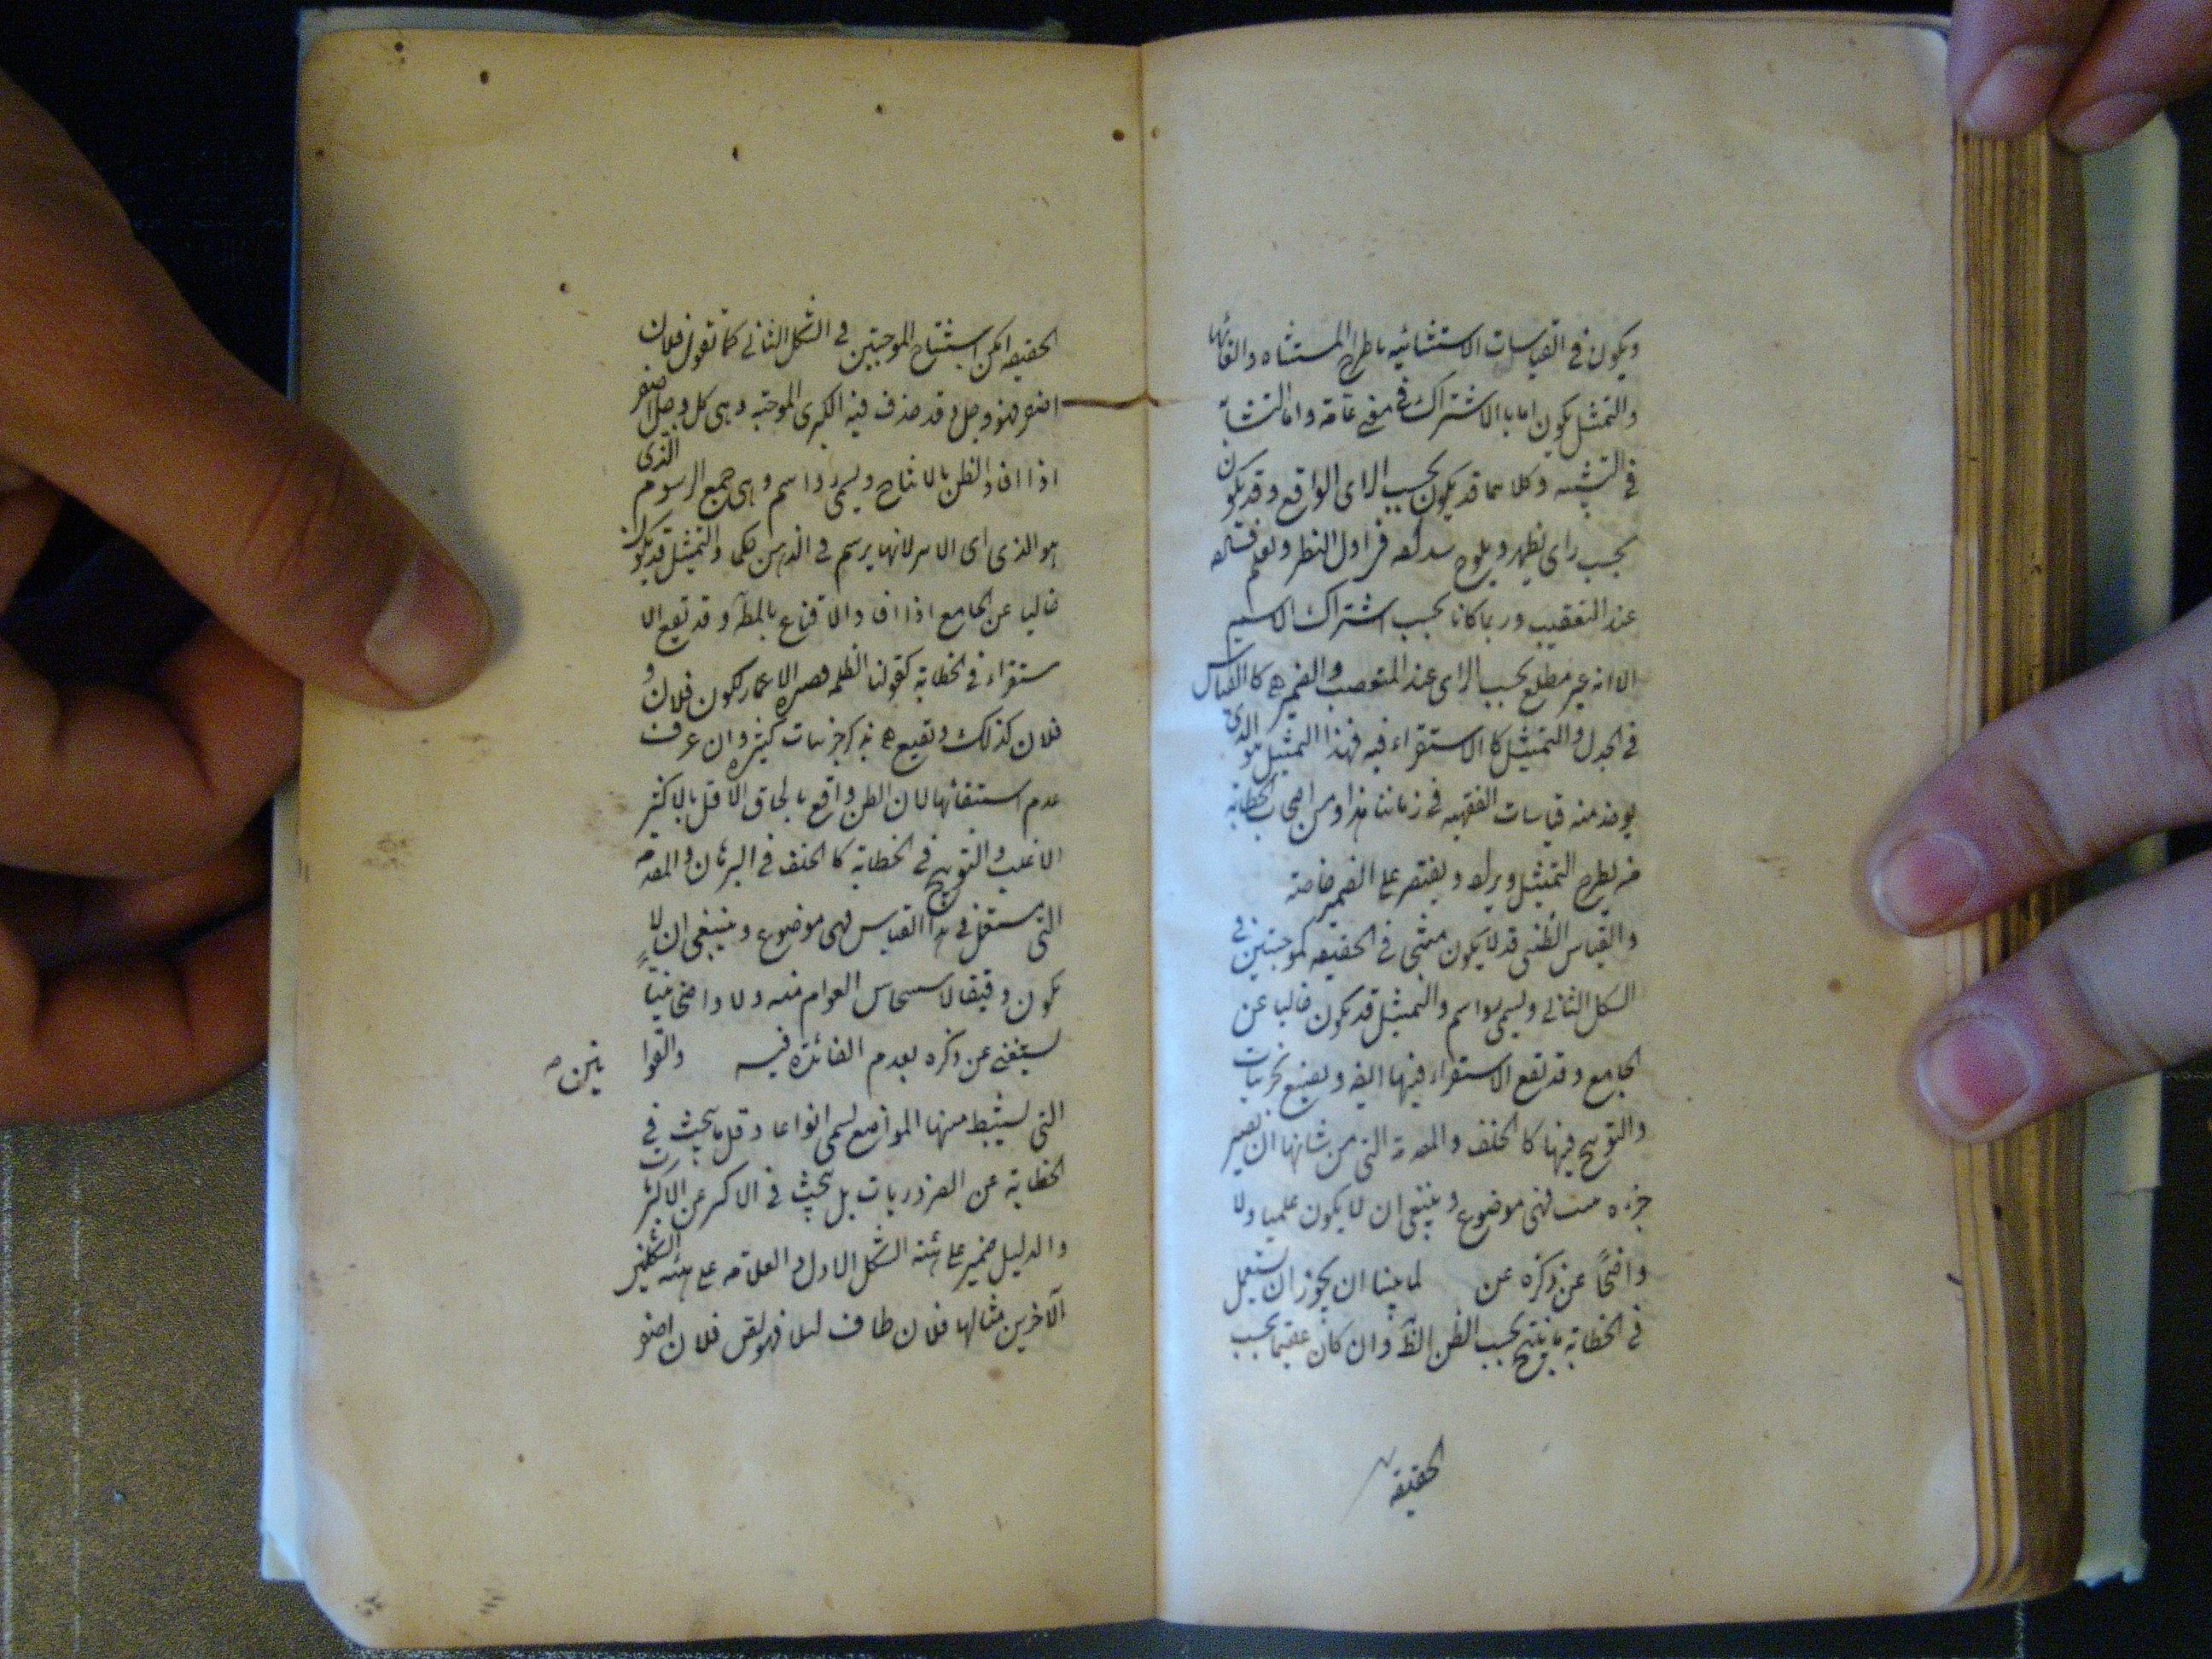 ويكون في القياسات الاستثنائيه باطراح المستثناه والقائها
والتمثيل يكون اما بالاشتراك في معنى عامة واما التشابه
في النسبه وكلاهما قد يكون بحسب الراى الواقع وقد يكون
بحسب راى يظهر ويلوح في اول النظر ويعلم
عند التعقيب وربما كانا بحسب اشتراك الاسم
الا انه غير مطلع بحسب الراى عند المتعصب والضمير كالقياس
في الجدل والتمثيل كالاستقراء فيه فهذا التمثيل هو الذى
يوخذ منه قياسات الفقهيه في زماننا هذا ومن اصحاب الخطابة
من يطرح التمثيل ويقتصر على الضمير خاصته
والقياس الظنى قد لا يكون منتجى في الحقيقه كموجبتين في
الشكل الثانى ويسمى رواسم والتمثيل قد يكون خاليا عن
الجامع وقد تقع الاستقراء فيها ايضه ويقنع بجزئيات
والتوبيخ فيها كالخلف والمقدمة التى من شانها ان تصير
جزء فهى موضوع وينبغى ان لا يكون علميا ولا
واضحًا عن ذكره عن لما بينا ان يجوز ان يستعمل
في الخطابة ما ينتج بحسب الظن الظ وان كان عقيما بحسب
الحقيقه
الحقيقه امكن استنتاج الموجبتين في الشكل الثانى كما تقول فلان
اصفر فهو وجل وقد حذف فيه الكبرى الموجبه وهى كل وجل اصفر
اذا افاد الظن بالانتاج ويسمى رواسم وهى جمع الرسوم الذى
هو الذى اى الاسر لانها يرسم في الذهن والتمثيل قد يكون
خاليا عن الجامع اذا افاد الاقناع بالمط وقد تقع الا
ستقراء في الخطابة كقولنا الظلمه الاعمار لكون فلان و
فلان كذلك وتقنع بذكر جزئيات كثيره وان عرف
عدم استيفائها لان الظن واقع بالحاق الاقل بالاكثر
الاغلب والتوبيخ في الخطابة كالخلف في البرهان والمقدمه
التى مستعمل في هذا القياس فهى موضوع وينبغى ان لا
يكون دقيقا لا العوام منه ولا واضحا بينًا
يستغنى عن ذكره بعدم الفائده فيه والقوا نين
التى يستنبط منها المواضع يسمى انواعا وقل ما يبحث في
الخطابة عن الضروريات بل يبحث في الاكثر عن الاكثريات
والدليل ضمير على هيئة الشكل الاول والعلامه على هيئة الشكلين
الآخرين مثالها فلان طاف ليلا فهو لص فلان اصفر